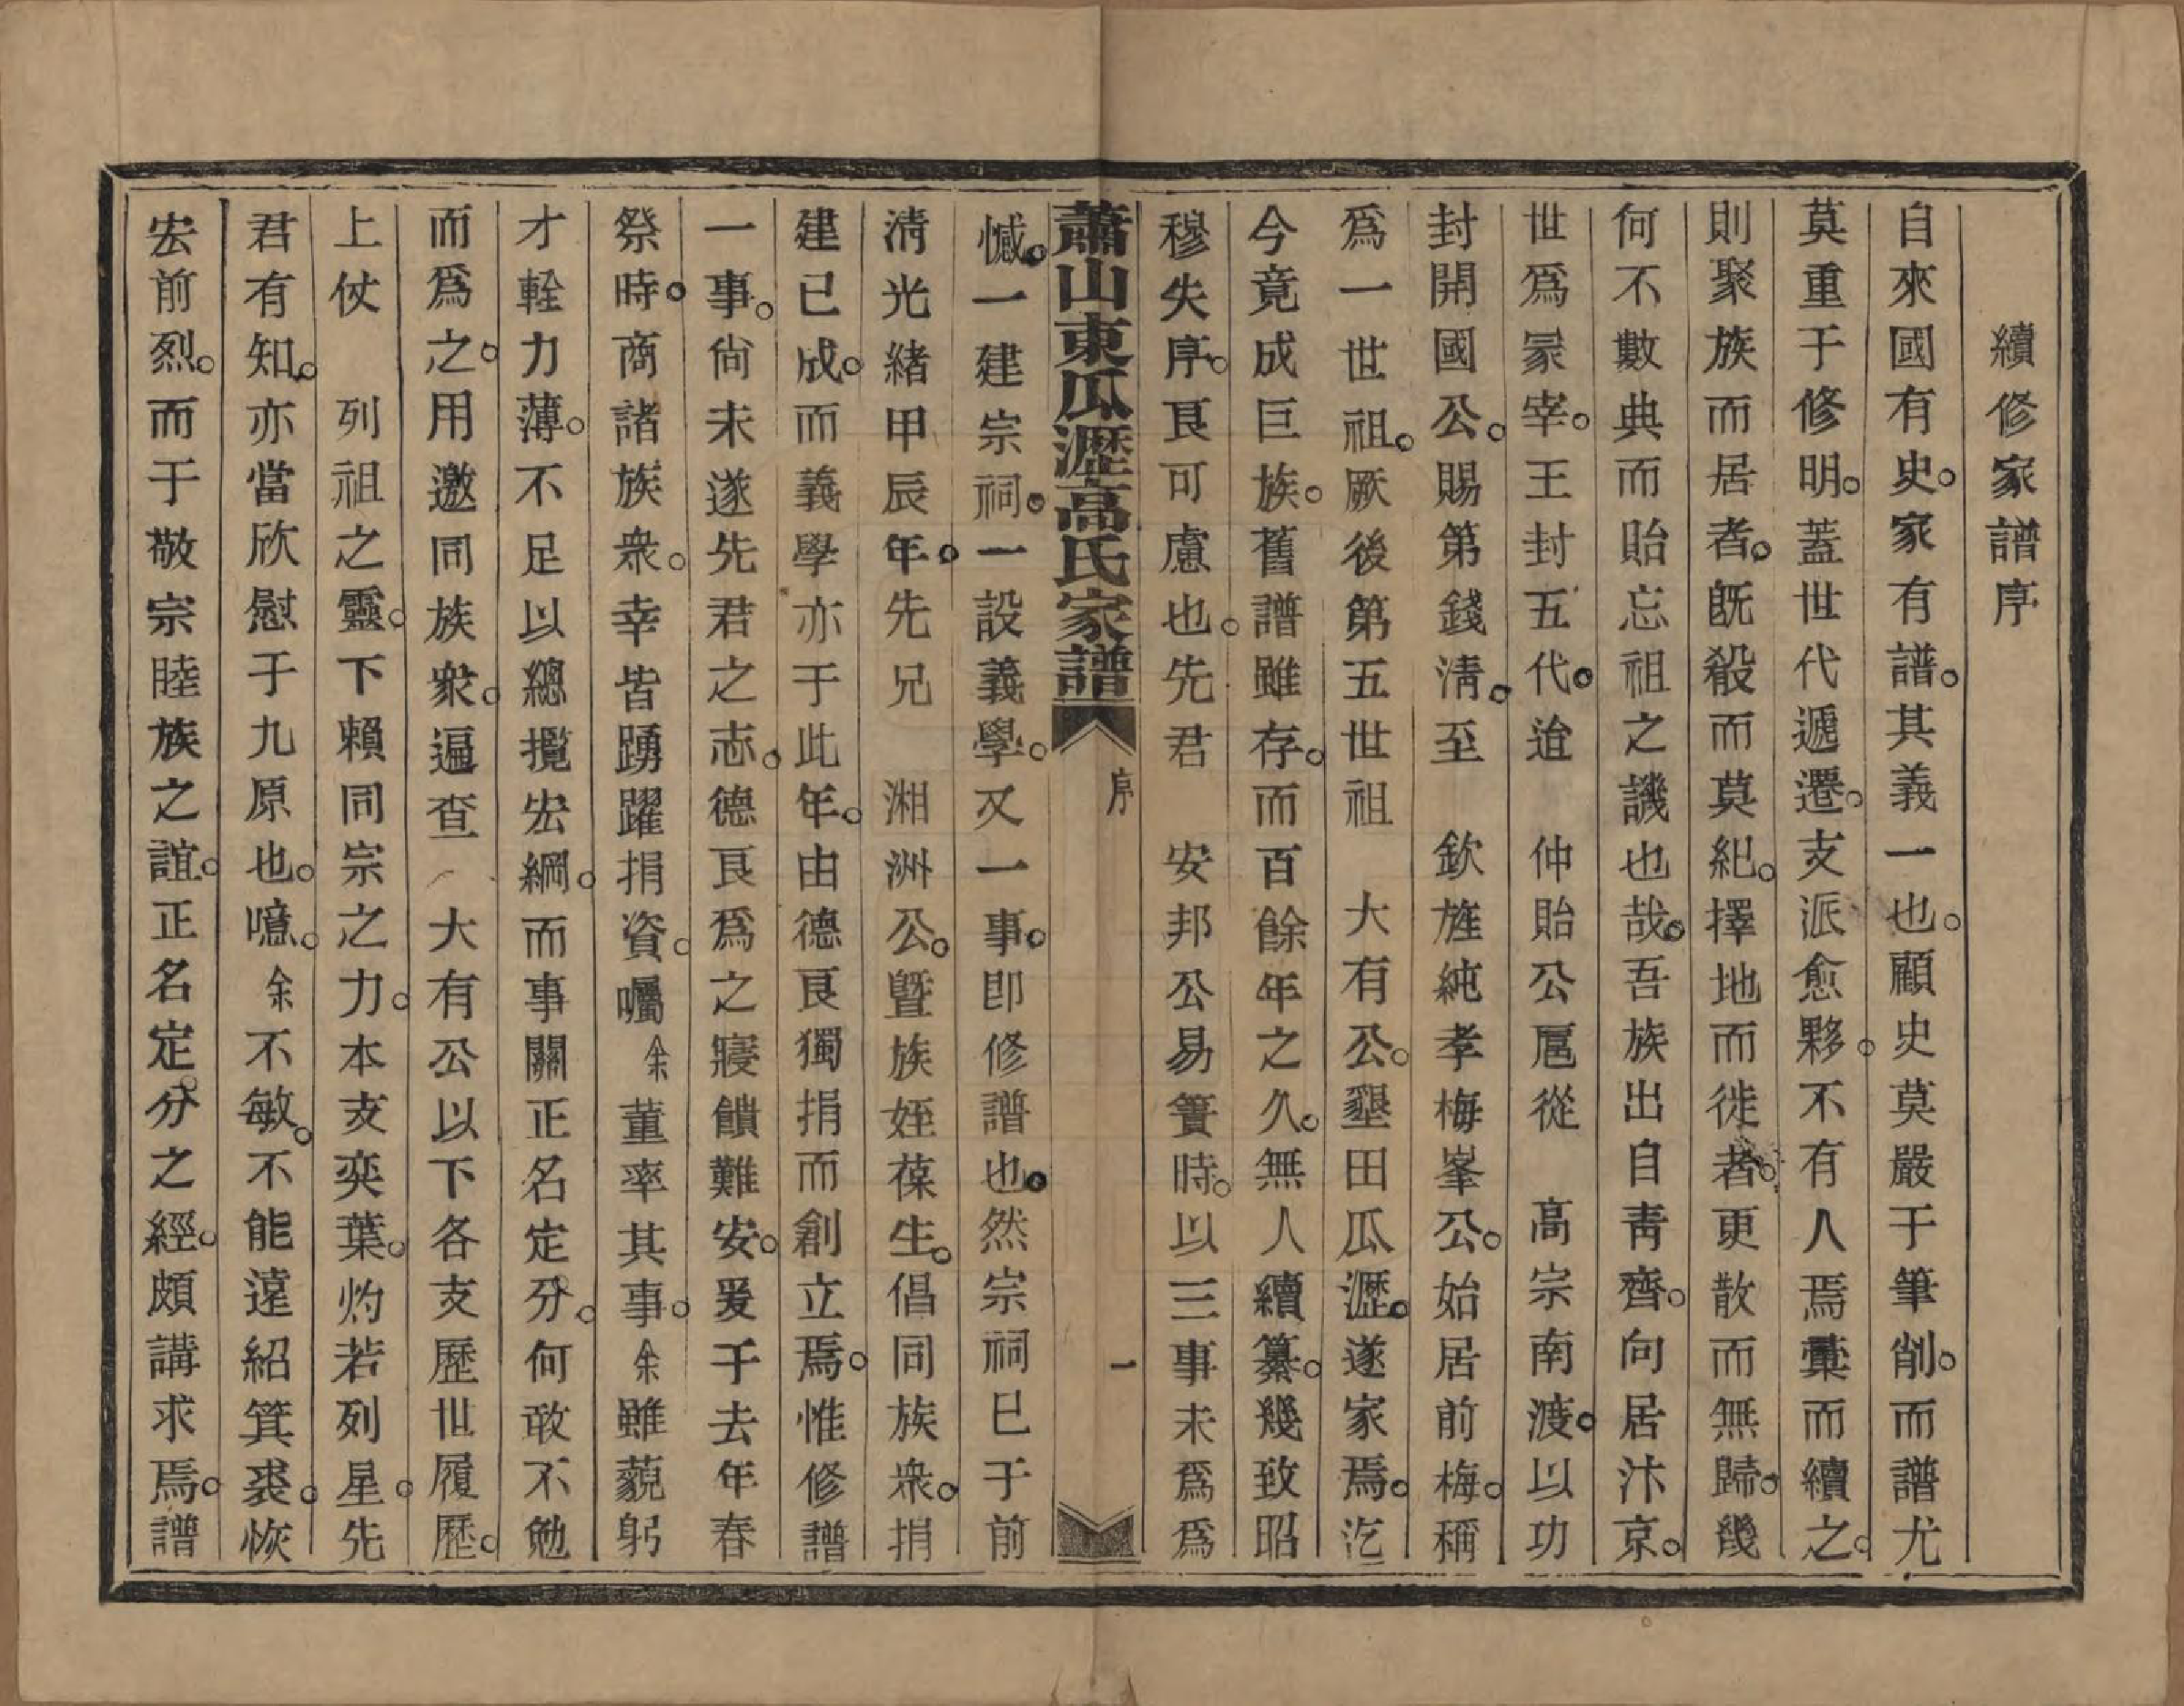 續修家譜序
自來國有史。家有譜。其義一也。顧史莫嚴于筆削。而譜尤
莫重于修明。蓋世代遞遷。支派愈夥。不有人焉彙而續之。
則聚族而居者。旣殺而莫紀。擇地而徙者。更散而無歸。幾
何不數典而貽忘祖之譏也哉。吾族出自靑齊。向居汴京。
世爲冢宰。王封五代。迨　仲貽公扈從　高宗南渡。以功
封開國公。賜第錢淸。至　欽旌純孝梅峯公。始居前梅。稱
爲一世祖。厥後第五世祖　大有公。墾田瓜瀝。遂家焉。迄
今竟成巨族。舊譜雖存。而百餘年之久。無人續纂。幾致昭
穆失序。良可慮也。先君　安邦公易簀時。以三事未爲爲
蕭山東瓜瀝高氏家譜　序　一
憾。一建宗祠。一設義學。又一事。卽修譜也。然宗祠已于前
淸光緒甲辰年。先兄　湘洲公。曁族姪葆生。倡同族衆。捐
建已成。而義學亦于此年。由德良獨捐而創立焉。惟修譜
一事。尙未遂先君之志。德良爲之寢饋難安。爰于去年春
祭時。商諸族衆。幸皆踴躍捐資。囑余董率其事。余雖藐躬
才輇力薄。不足以總攬宏綱。而事關正名定分。何敢不勉
而爲之。用邀同族衆。遍查　大有公以下各支歷世履歷。
上仗　列祖之靈。下賴同宗之力。本支奕葉。灼若列星。先
君有知。亦當欣慰于九原也。噫。余不敏。不能遠紹箕裘。恢
宏前烈。而于敬宗睦族之誼。正名定分之經。頗講求焉。譜